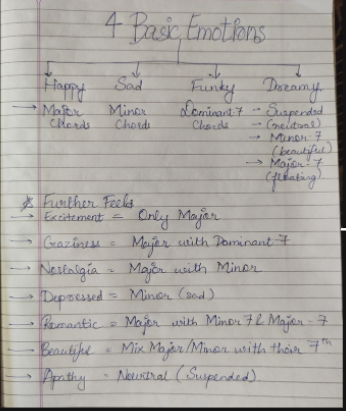 4 Basic Emotions
Happy Sad Funky Dreamy
→ Major Minor Dominant 7 → Suspended
Chords Chords Chords (neutral)
→ Minor-7
(beautiful)
→ Major-7
(floating)
Further Feels
→ Excitement = Only Major
→ Craziness = Major with Dominant 7
→ Nostalgia = Major with Minor
→ Depressed = Minor (sad)
→ Romantic = Major with Minor 7 & Major-7
→ Beautiful = Mix Major/Minor with their 7th
→ Apathy = Newtral (Suspended)